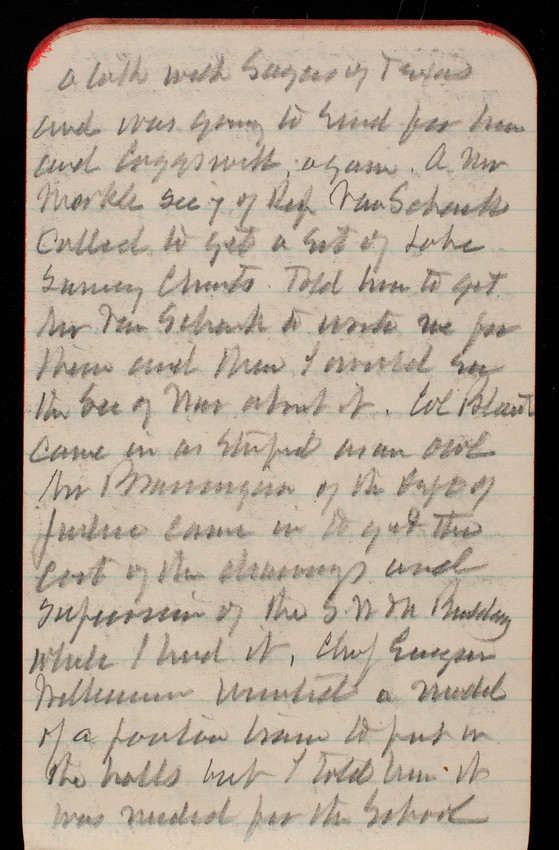 a talk with Sayers of Texas
and was going to send for him
and Coggswell again. A Mr
Markle Secy of Rep Van Schaick
Called to get a set of Lake
Survey Charts. Told him to get
Mr Van Schaick to write me for
them and then I would see
the Sec of War about it. Col Blunt
came in as stupid as an owl
Mr of the Dept of
Justice came in to get the
cost of the drawings and
supervision of the S W & N Building
while I had it. Chf Engineer
wanted a model
of a pontoon train to put in
the halls but I told him it
was needed for the School